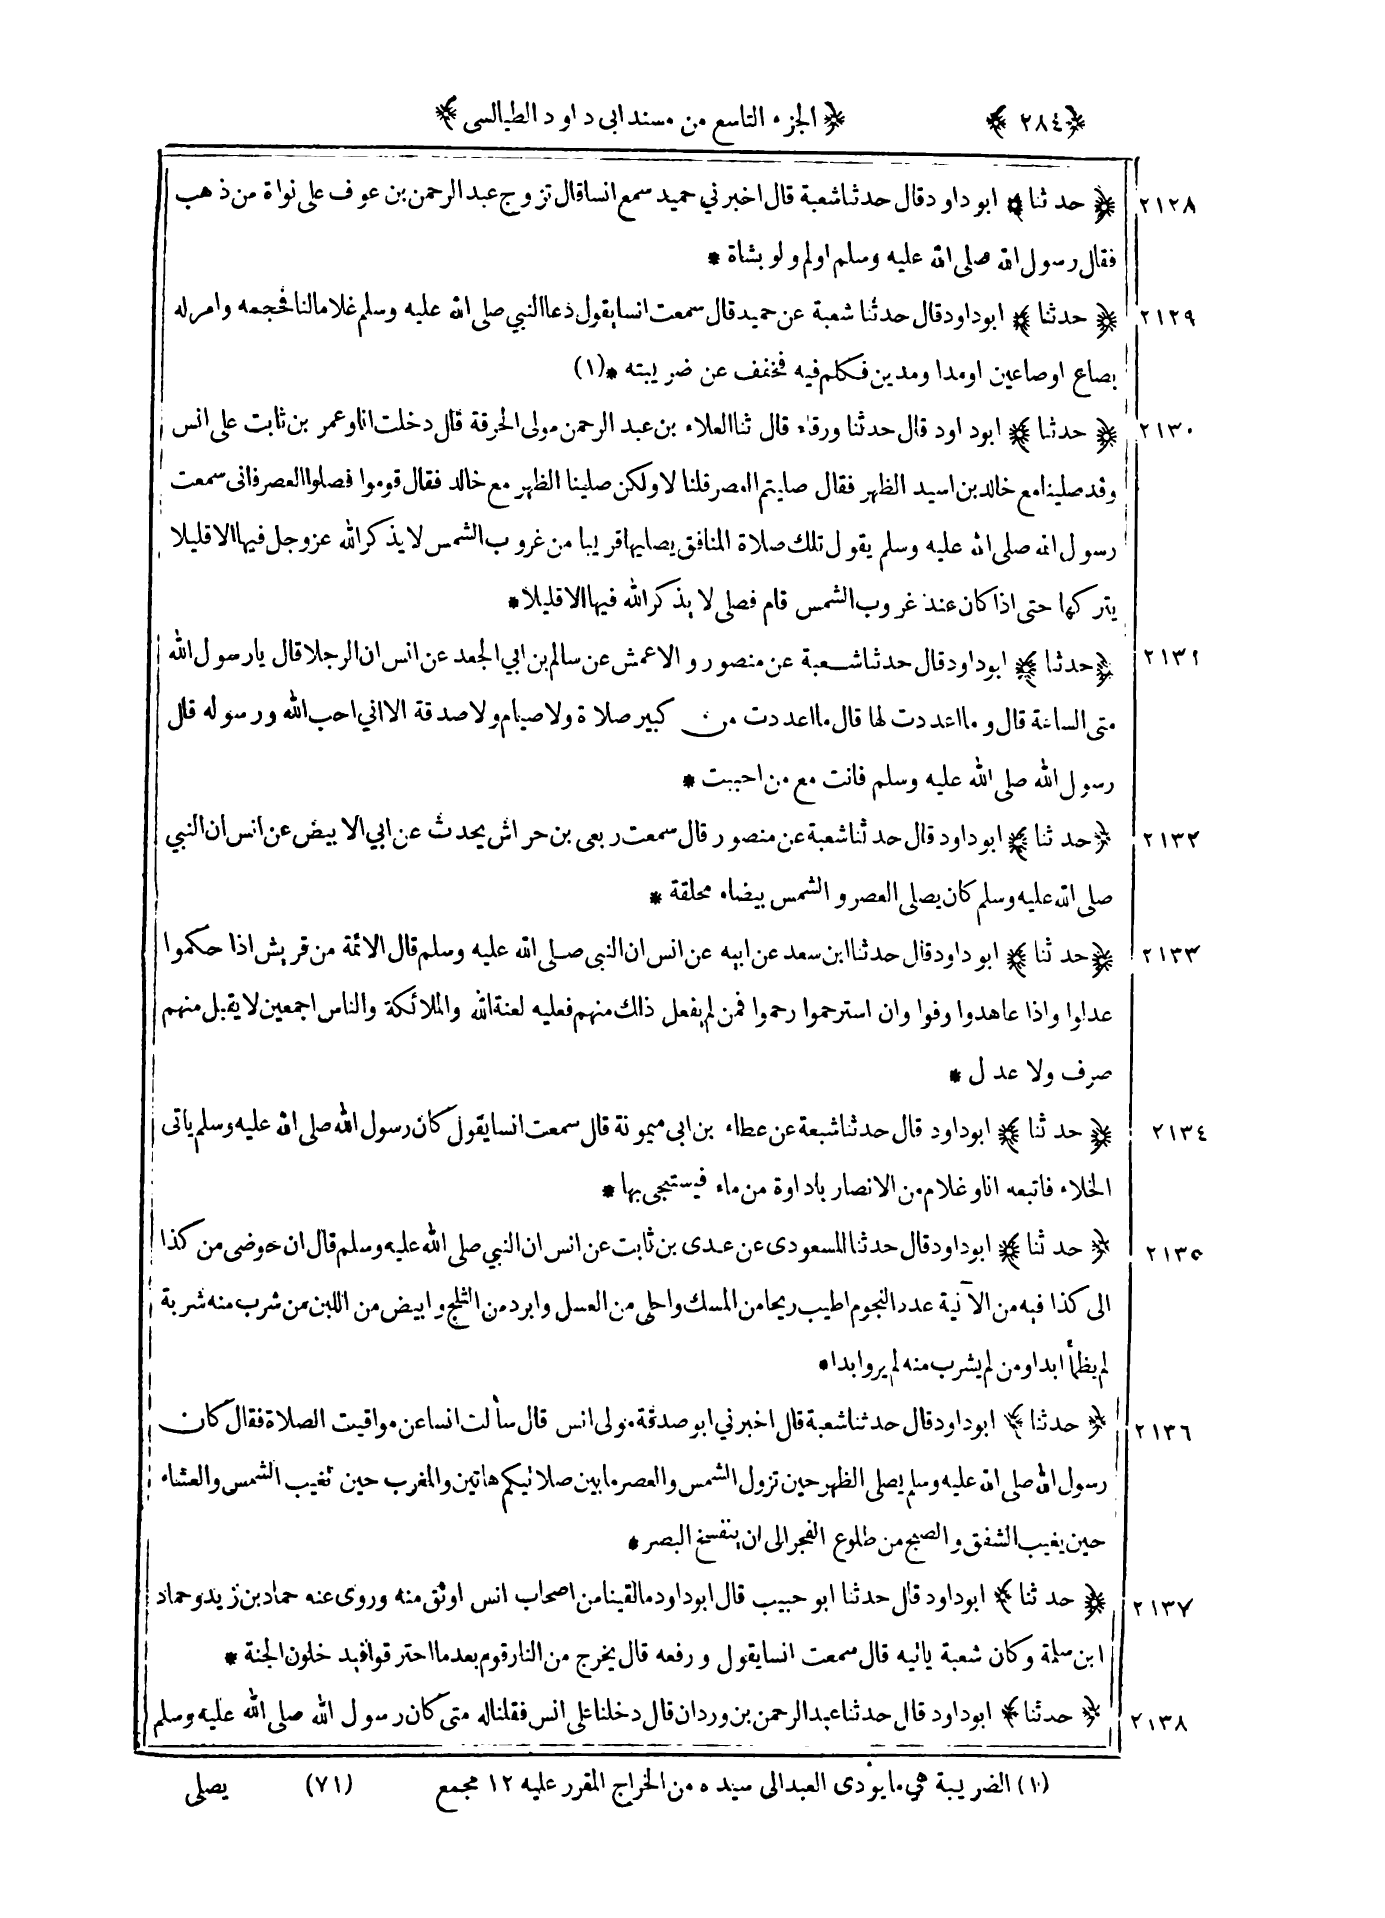 ﴿٢٨٤﴾ ﴿الجزء التاسع من مسند ابى داود الطيالسى﴾
٢١٢٨ ﴿حدثنا﴾ ابو داود قال حدثنا شعبة قال اخبرني حميد سمع انسا قال تزوج عبد الرحمن بن عوف على نواة من ذهب
فقال رسول الله صلى الله عليه وسلم اولم ولو بشاة *
٢١٢٩ ﴿حدثنا﴾ ابو داود قال حدثنا شعبة عن حميد قال سمعت انسا يقول دعا النبي صلى الله عليه وسلم غلاما لنا فحجمه وامر له
بصاع اوصاعين اومدا ومدين فكلم فيه فخفف عن ضريبته *(١)
٢١٣٠ ﴿حدثنا﴾ ابو داود قال حدثنا ورقاء قال ثنا العلاء بن عبد الرحمن مولى الحرقة قال دخلت انا وعمر بن ثابت على انس
وقد صلينا مع خالد بن اسيد الظهر فقال صليتم العصر قلنا لا ولكن صلينا الظهر مع خالد فقال قوموا فصلوا العصر فانى سمعت
رسول الله صلى الله عليه وسلم يقول تلك صلاة المنافق يصليها قريبا من غروب الشمس لا يذكر الله عزوجل فيها الا قليلا
يتركها حتى اذا كان عند غروب الشمس قام فصلى لا يذكر الله فيها الا قليلا *
٢١٣١ ﴿حدثنا﴾ ابو داود قال حدثنا شعبة عن منصور والاعمش عن سالم بن ابي الجعد عن انس ان الرجلا قال يا رسول الله
متى الساعة قال وما اعددت لها قال ما اعددت من كبير صلاة ولا صيام ولا صدقة الا اني احب الله ورسوله قال
رسول الله صلى الله عليه وسلم فانت مع من احببت *
٢١٣٢ ﴿حدثنا﴾ ابو داود قال حدثنا شعبة عن منصور قال سمعت ربعى بن حراش يحدث عن ابي الابيض عن انس ان النبي
صلى الله عليه وسلم كان يصلى العصر والشمس بيضاء محلقة *
٢١٣٣ ﴿حدثنا﴾ ابو داود قال حدثنا ابن سعد عن ابيه عن انس ان النبى صلى الله عليه وسلم قال الائمة من قريش اذا حكموا
عدلوا واذا عاهدوا وفوا وان استرحموا رحموا فمن لم يفعل ذلك منهم فعليه لعنة الله والملائكة والناس اجمعين لا يقبل منهم
صرف ولا عدل *
٢١٣٤ ﴿حدثنا﴾ ابو داود قال حدثنا شعبة عن عطاء بن ابى ميمونة قال سمعت انسا يقول كان رسول الله صلى الله عليه وسلم ياتى
الخلاء فاتبعه انا وغلام من الانصار باداوة من ماء فيستنجى بها *
٢١٣٥ ﴿حدثنا﴾ ابو داود قال حدثنا المسعودى عن عدى بن ثابت عن انس ان النبي صلى الله عليه وسلم قال ان حوضى من كذا
الى كذا فيه من الآنية عدد النجوم اطيب ريحا من المسك واحلى من العسل وابرد من الثلج وابيض من اللبن من شرب منه شربة
لم يظمأ ابدا ومن لم يشرب منه لم يرو ابدا *
٢١٣٦ ﴿حدثنا﴾ ابو داود قال حدثنا شعبة قال اخبرني ابو صدقة مولى انس قال سألت انسا عن مواقيت الصلاة فقال كان
رسول الله صلى الله عليه وسلم يصلى الظهر حين تزول الشمس والعصر ما بين صلاتيكم هاتين والمغرب حين تغيب الشمس والعشاء
حين يغيب الشفق والصبح من طلوع الفجر الى ان ينفسخ البصر *
٢١٣٧ ﴿حدثنا﴾ ابو داود قال حدثنا ابو حبيب قال ابو داود ما لقينا من اصحاب انس اوثق منه وروى عنه حماد بن زيد وحماد
ابن سلمة وكان شعبة ياتيه قال سمعت انسا يقول ورفعه قال يخرج من النار قوم بعد ما احترقوا فيدخلون الجنة *
٢١٣٨ ﴿حدثنا﴾ ابو داود قال حدثنا عبد الرحمن بن وردان قال دخلنا على انس فقلنا له متى كان رسول الله صلى الله عليه وسلم
(١) الضريبة هى ما يؤدى العبد الى سيده من الخراج المقرر عليه ١٢ مجمع (٧١) يصلى